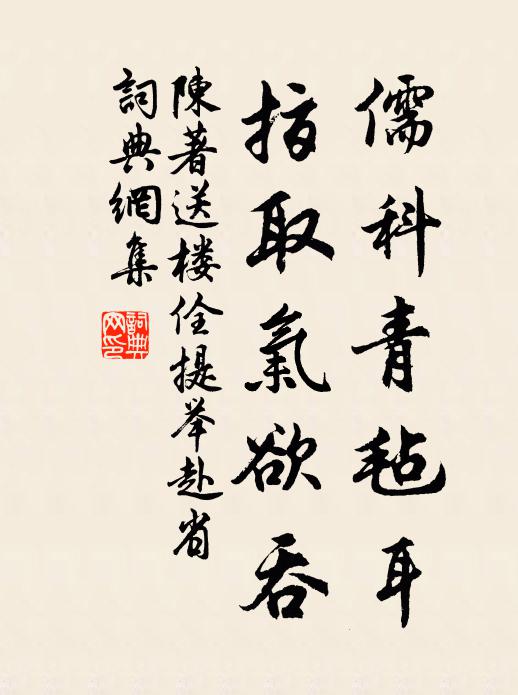 儒科青毡耳
指取氣欲吞
陳著送楼佺提举赴省
詞典網集
詞典
网印